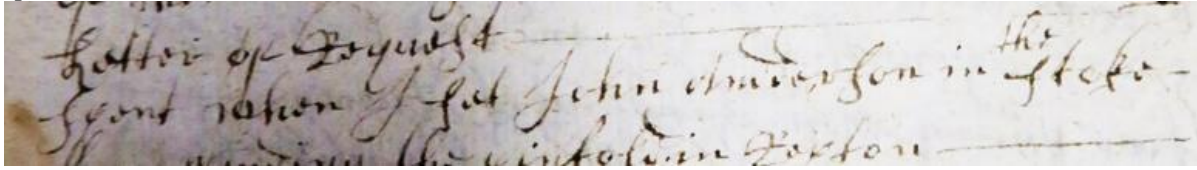 Letter of Request
spent when I set John Anderson in the stoke
mending the pinfold in Repton